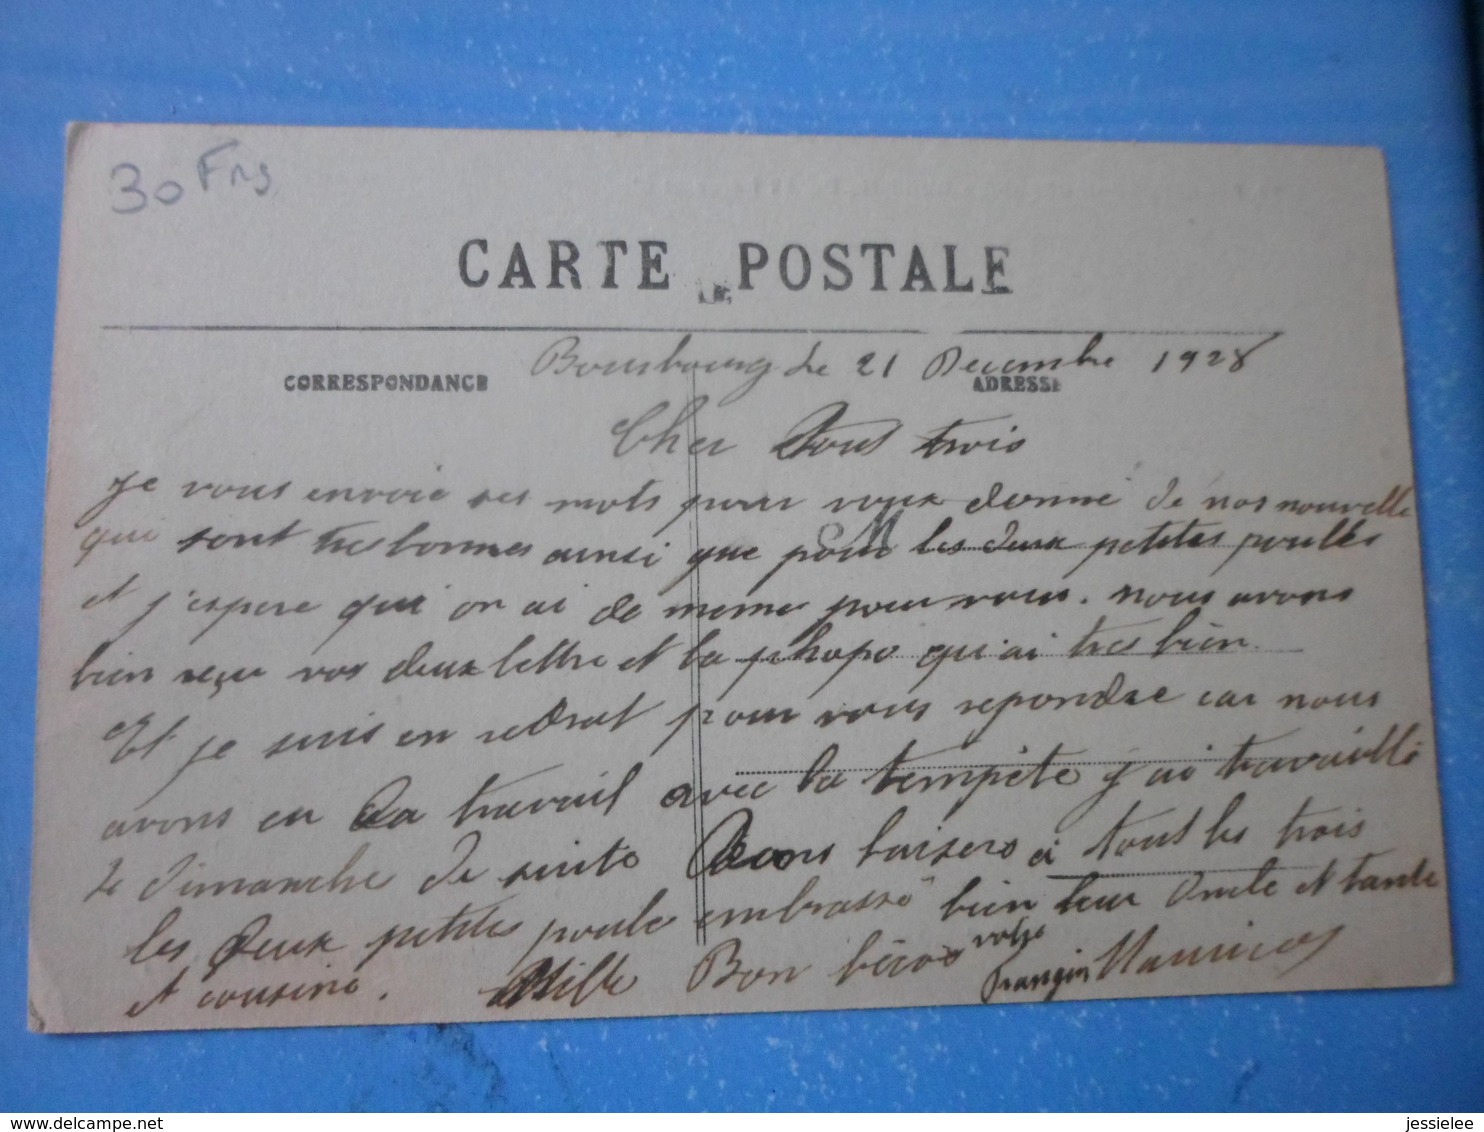 30 Frs
CARTE POSTALE
Bourbourg Le 21 Decembre 1928
CORRESPONDANCE
ADRESSE
Cher tous trois
Je vous envoie ses mots pour vous donné de nos nouvelle
qui sont tres bonnes ainsi que pour les deux petites poulles
et j'espere qui on ai de meme pour vous. nous avons
bien reçu vos deux lettre et la phopo qui ai tres bien.
Et je suis en retrat pour vous repondre car nous
avons eu du travail avec la tempête j'ai travaillé
le dimanche de suite bons baisers a tous les trois
les deux petites poule embrassé bien leur oncle et tante
et cousine. Mille Bon béco votre
frangin Maurice
delcampe.net
jessielee